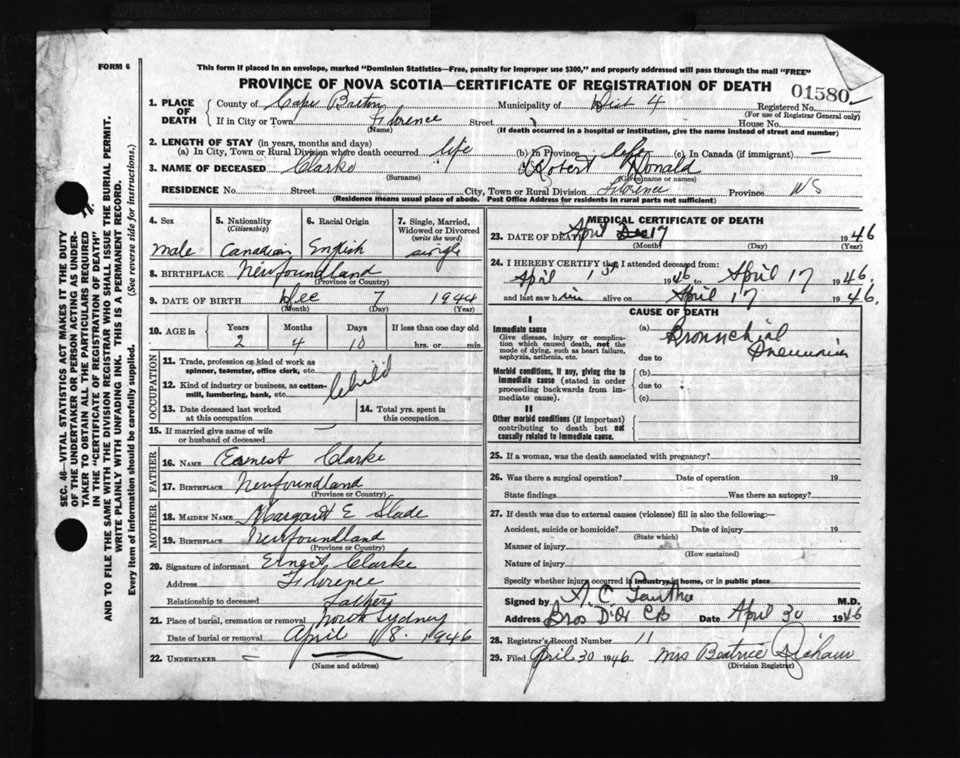 FORM 6
This form if placed in an envelope, marked "Dominion Statistics—Free, penalty for improper use $300," and properly addressed will pass through the mail "FREE"
PROVINCE OF NOVA SCOTIA—CERTIFICATE OF REGISTRATION OF DEATH
01580
1. PLACE OF DEATH
County of Cape Breton Municipality of Dist 4 Registered No.
(For use of Registrar General only)
If in City or Town Florence Street House No.
(Name) (If death occurred in a hospital or institution, give the name instead of street and number)
2. LENGTH OF STAY (in years, months and days)
(a) In City, Town or Rural Division where death occurred life (b) In Province life (c) In Canada (if immigrant) —
3. NAME OF DECEASED Clarke Robert Donald
(Surname) (Given name or names)
RESIDENCE No. Street City, Town or Rural Division Florence Province NS
(Residence means usual place of abode. Post Office Address for residents in rural parts not sufficient)
4. Sex 5. Nationality (Citizenship) 6. Racial Origin 7. Single, Married, Widowed or Divorced (write the word)
male Canadian English single
8. BIRTHPLACE Newfoundland
(Province or Country)
9. DATE OF BIRTH Dec 7 1944
(Month) (Day) (Year)
10. AGE in Years Months Days If less than one day old
2 4 10 hrs. or min.
OCCUPATION
11. Trade, profession or kind of work as spinner, teamster, office clerk, etc.
12. Kind of industry or business, as cotton-mill, lumbering, bank, etc. Child
13. Date deceased last worked at this occupation
14. Total yrs. spent in this occupation
15. If married give name of wife or husband of deceased
FATHER
16. NAME Earnest Clarke
17. BIRTHPLACE Newfoundland
(Province or Country)
MOTHER
18. MAIDEN NAME Margaret E Slade
19. BIRTHPLACE Newfoundland
(Province or Country)
20. Signature of informant Ernest Clarke
Address Florence
Relationship to deceased Father
21. Place of burial, cremation or removal North Sydney
Date of burial or removal April 18 1946
22. UNDERTAKER
(Name and address)
MEDICAL CERTIFICATE OF DEATH
23. DATE OF DEATH April Dec 17 1946
(Month) (Day) (Year)
24. I HEREBY CERTIFY that I attended deceased from:
April 1st 1946 to April 17 1946.
and last saw him alive on April 17 1946.
CAUSE OF DEATH
I
Immediate cause
Give disease, injury or complication which caused death, not the mode of dying, such as heart failure, asphyxia, asthenia, etc.
(a) Bronchial Pneumonia
due to
Morbid conditions, if any, giving rise to immediate cause (stated in order proceeding backwards from immediate cause).
(b)
due to
(c)
II
Other morbid conditions (if important) contributing to death but not causally related to immediate cause.
25. If a woman, was the death associated with pregnancy?
26. Was there a surgical operation? Date of operation 19
State findings Was there an autopsy?
27. If death was due to external causes (violence) fill in also the following:—
Accident, suicide or homicide? Date of injury 19
(State which)
Manner of injury
(How sustained)
Nature of injury
Specify whether injury occurred in industry, in home, or in public place
Signed by A. C. M.D.
Address Bras D'Or CB Date April 30 1946
28. Registrar's Record Number 11
29. Filed April 30 1946 Mrs Beatrice
(Division Registrar)
SEC. 46—VITAL STATISTICS ACT MAKES IT THE DUTY
OF THE UNDERTAKER OR PERSON ACTING AS UNDER-
TAKER TO OBTAIN ALL THE PARTICULARS REQUIRED
IN THE "CERTIFICATE OF REGISTRATION OF DEATH"
AND TO FILE THE SAME WITH THE DIVISION REGISTRAR WHO SHALL ISSUE THE BURIAL PERMIT.
WRITE PLAINLY WITH UNFADING INK. THIS IS A PERMANENT RECORD.
Every item of information should be carefully supplied. (See reverse side for instructions.)